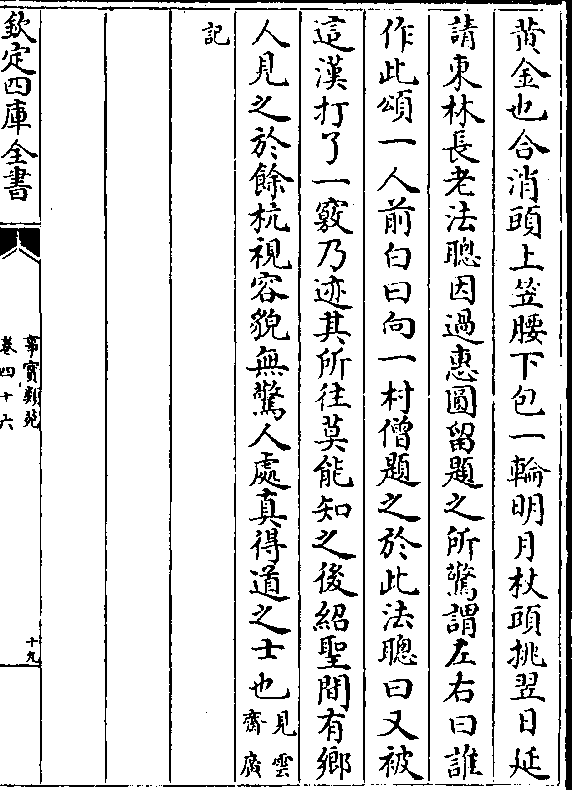 黄金也合消頭上笠腰下包一輪明月杖頭挑翌日延
請東林長老法聰因過惠圓留題之所驚謂左右曰誰
作此頌一人前白曰向一村僧題之於此法聰曰又被
這漢打了一竅乃迹其所往莫能知之後紹聖間有鄉
人見之於餘杭視容貌無驚人處真得道之士也見雲齋廣
記
欽定四庫全書
事實類苑
卷四十六
十九